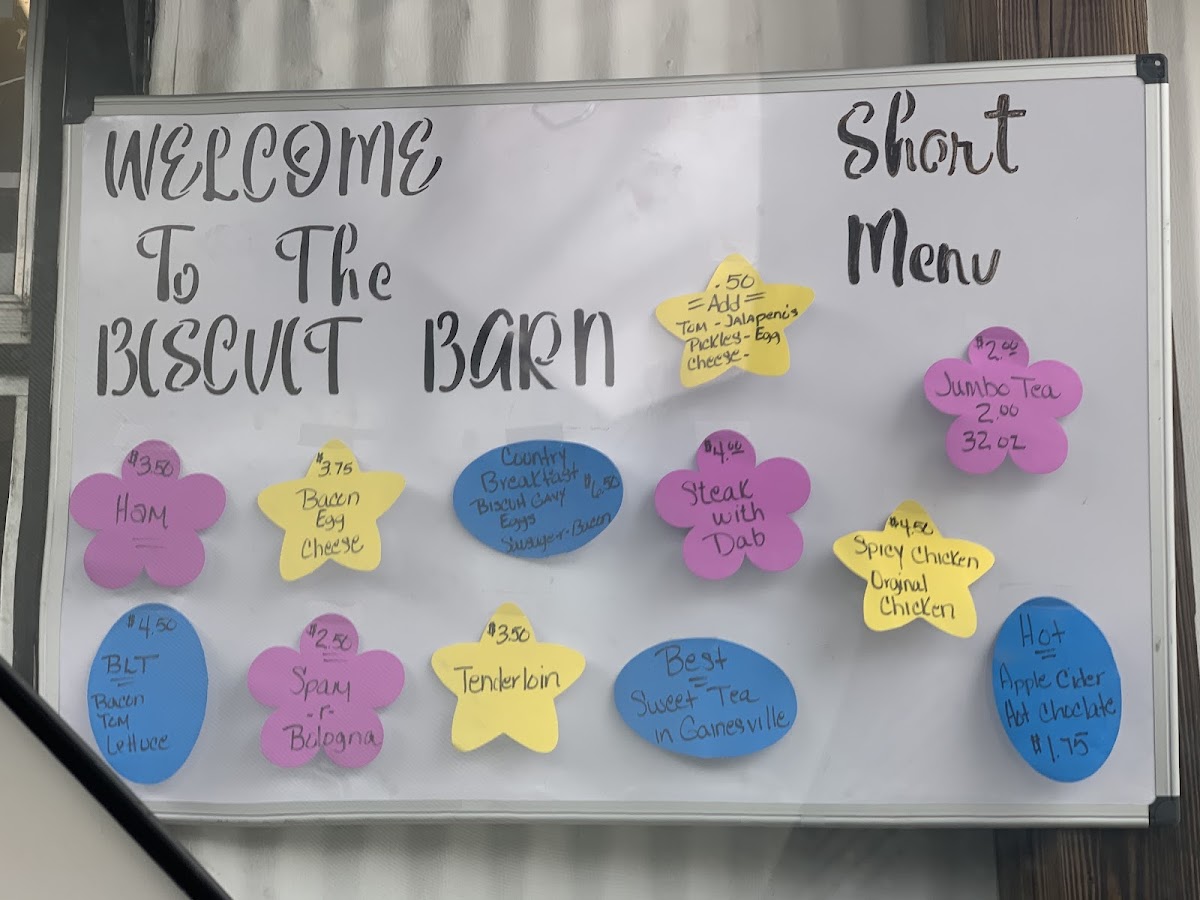 WELCOME
To The
BISCUIT BARN
Short
Menu
.50
=Add=
Tom - Jalapeno's
Pickles - Egg
Cheese -
$2.00
Jumbo Tea
2.00
32 oz
$3.50
Ham
$3.75
Bacon
Egg
Cheese
Country
Breakfast
Biscuit Gavy $6.50
Eggs
Sausage-r-Bacon
$4.00
Steak
with
Dab
$4.50
Spicy Chicken
Orginal
Chicken
$4.50
BLT
Bacon
Tom
Lettuce
$2.50
Spam
-r-
Bologna
$3.50
Tenderloin
Best
Sweet Tea
in Gainesville
Hot
Apple Cider
Hot Choclate
$1.75